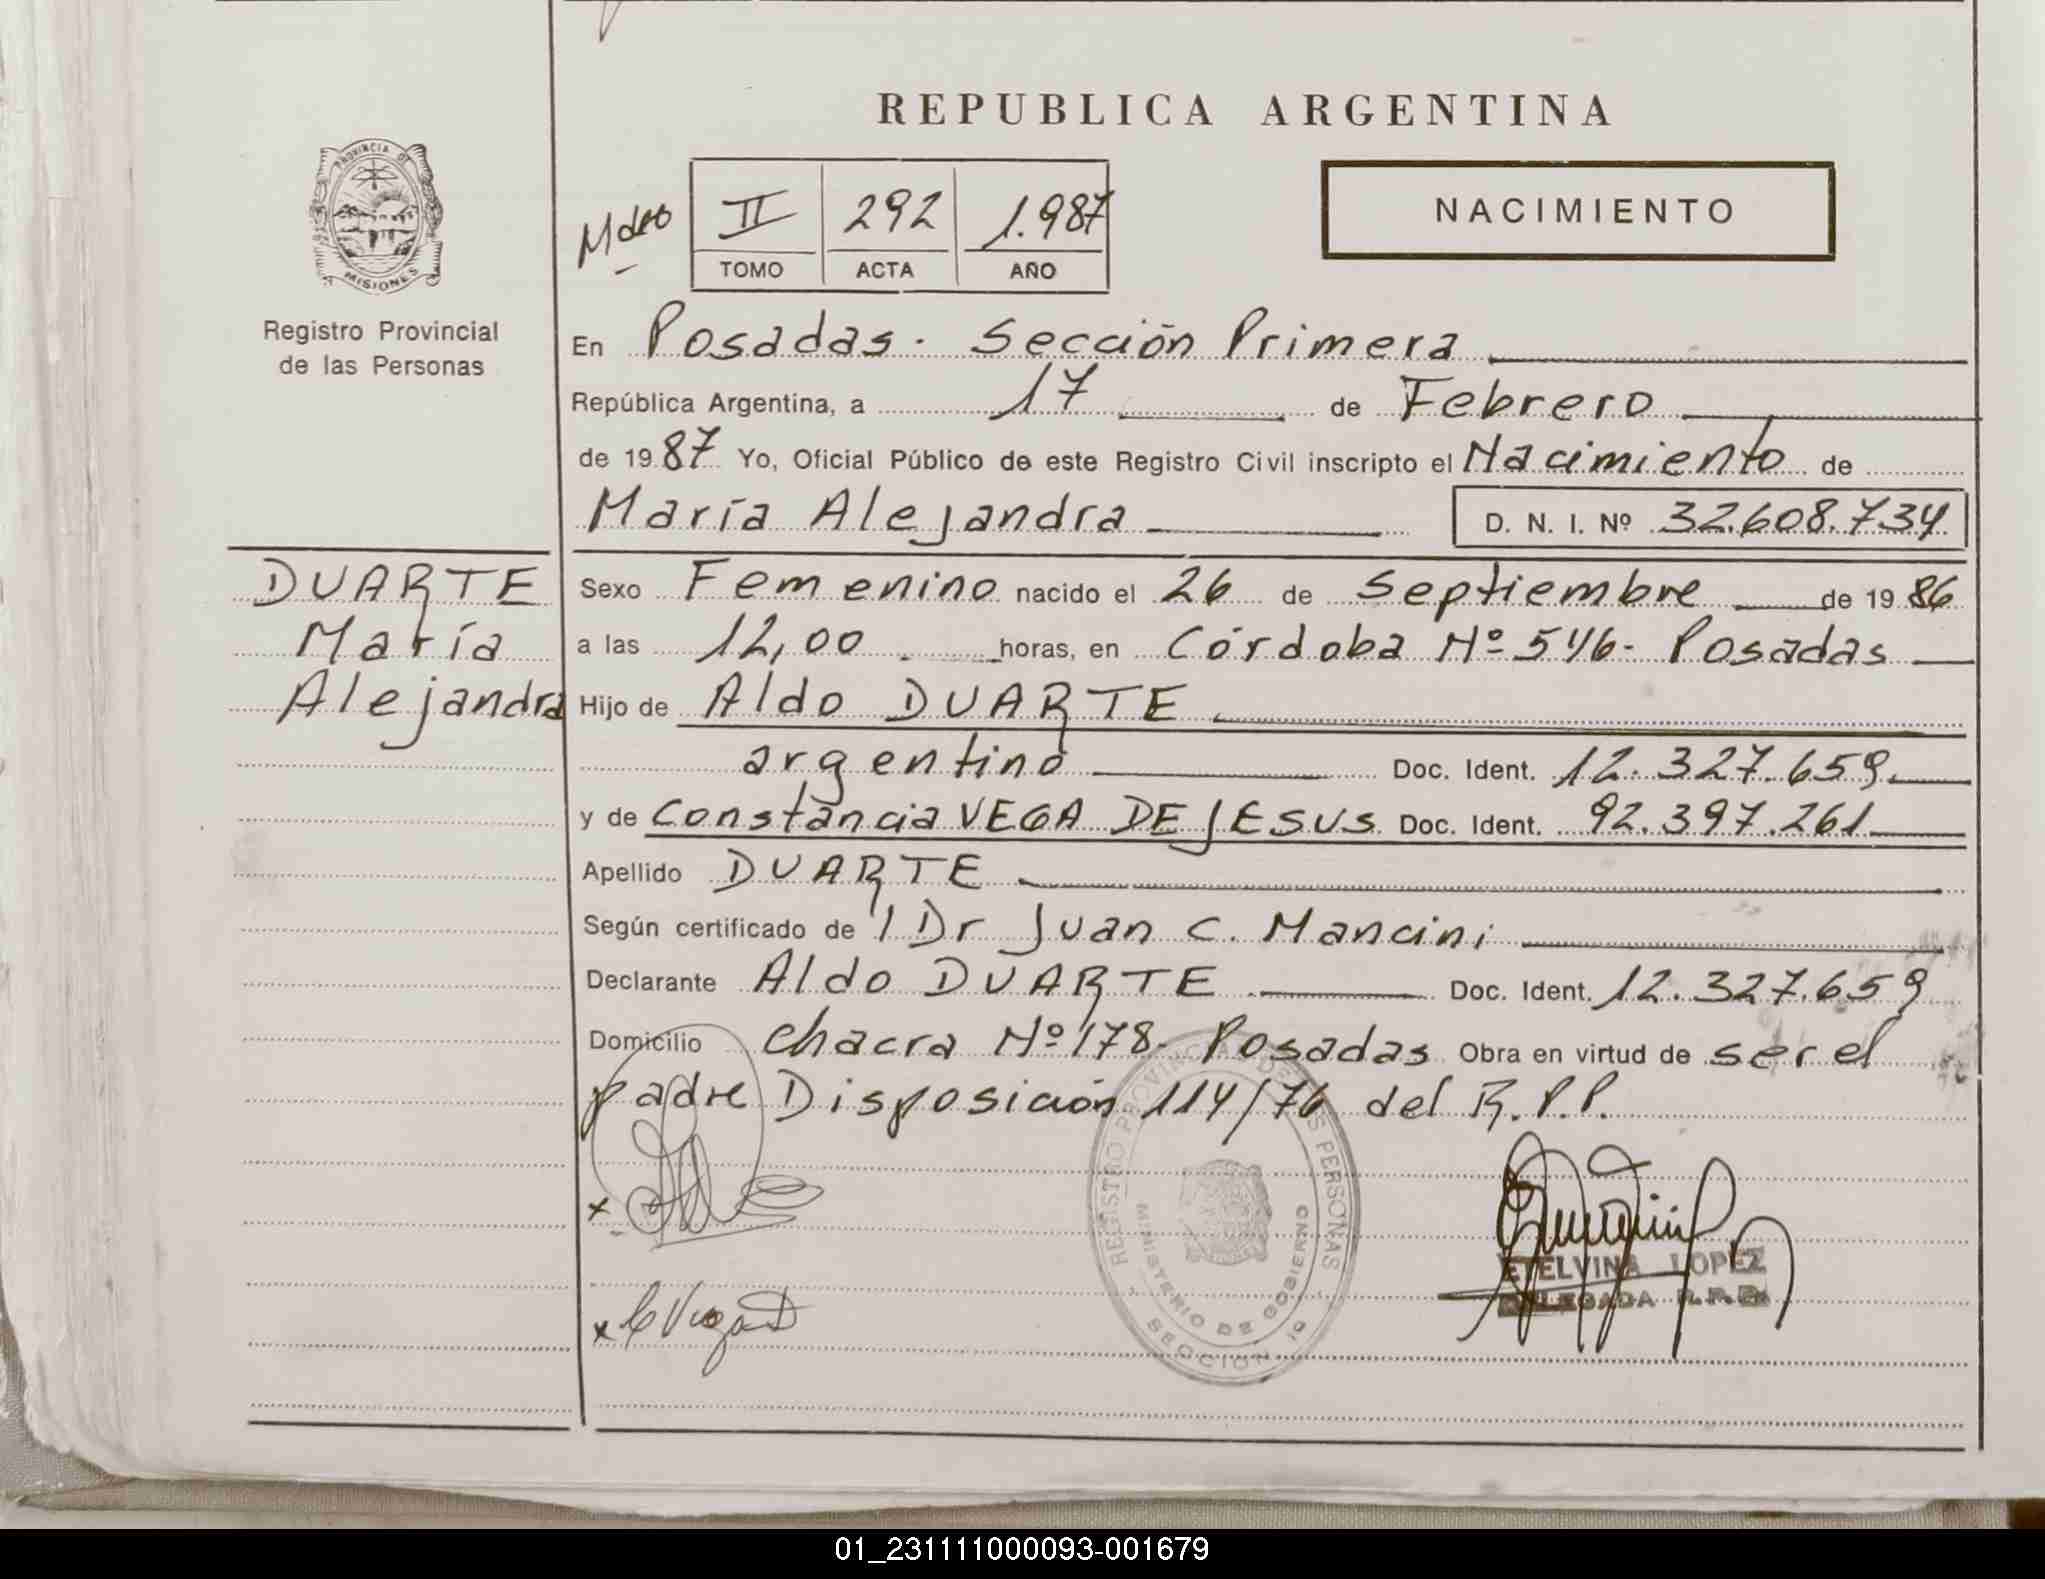 REPUBLICA ARGENTINA
PROVINCIA DE
MISIONES
Registro Provincial
de las Personas
II 292 1.987
TOMO ACTA AÑO
NACIMIENTO
En Posadas. Sección Primera
República Argentina, a 17 de Febrero
de 1987 Yo, Oficial Público de este Registro Civil inscripto el Nacimiento de
María Alejandra D. N. I. Nº 32.608.734
DUARTE
María
Alejandra
Sexo Femenino nacido el 26 de Septiembre de 1986
a las 12,00 horas, en Córdoba Nº 546- Posadas
Hijo de Aldo DUARTE
argentino Doc. Ident. 12.327.659
y de Constancia VEGA DE JESUS Doc. Ident. 92.397.261
Apellido DUARTE
Según certificado de l Dr Juan C. Mancini
Declarante Aldo DUARTE Doc. Ident. 12.327.659
Domicilio chacra Nº 178- Posadas Obra en virtud de ser el
padre Disposición 114/76 del R.P.P.
REGISTRO PROVINCIAL DE LAS PERSONAS
MINISTERIO DE GOBIERNO
SECCION 1a
x
x C Vega D
ETELVINA LOPEZ
DELEGADA R.P.P.
01_231111000093-001679